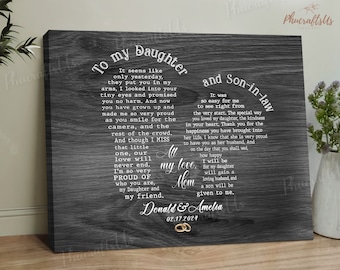 PhucraftsUs
To my Daughter
It seems like
only yesterday,
they put you in my
arms, I looked into your
tiny eyes and promised
you no harm. And now
you have grown up and
made me so very proud
as you smile for the
camera, and the
rest of the crowd.
And though I MISS
that little
one, our
love will
never end.
I'm so very
PROUD OF
who you are,
my Daughter and
my friend.
and Son-in-law
It was
so easy for me
to see right from
the very start. The special way
you loved my daughter, the kindness
in your heart. Thank you for the
happiness you have brought into
her life. I know that she is very proud
to have you as her husband. And
on the day that you shall,
how happy
I will be
for my
daughter
will gain a
loving husband, and
a son will be
given to me.
All
my love,
Mom
Donald & Amelia
02.17.2024